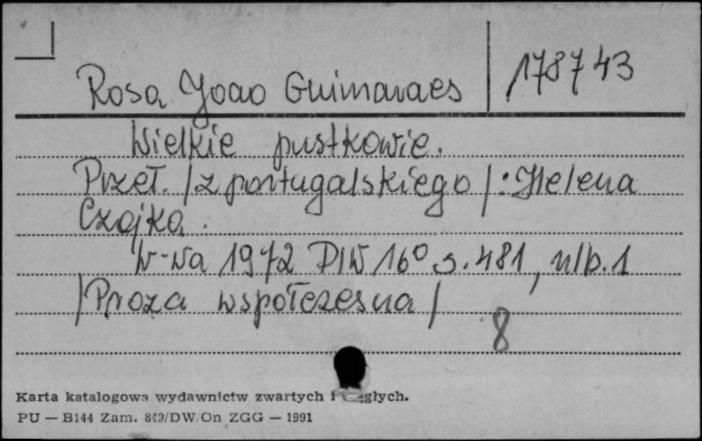 Rosa Joao Guimaraes 178743
Wielkie pustkowie.
Przeł. /z portugalskiego/: Helena
Czajka.
W-wa 1972 PIW 16° s. 481, nlb. 1
/Proza współczesna/
8
Karta katalogowa wydawnictw zwartych i ciągłych.
PU — B144 Zam. /DW/On ZGG — 1991